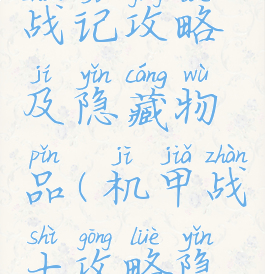 战记攻略
jí yǐn cáng wù
及隐藏物
pǐn jī jiǎ zhàn
品(机甲战
shì gōng lüè yǐn
士攻略隐